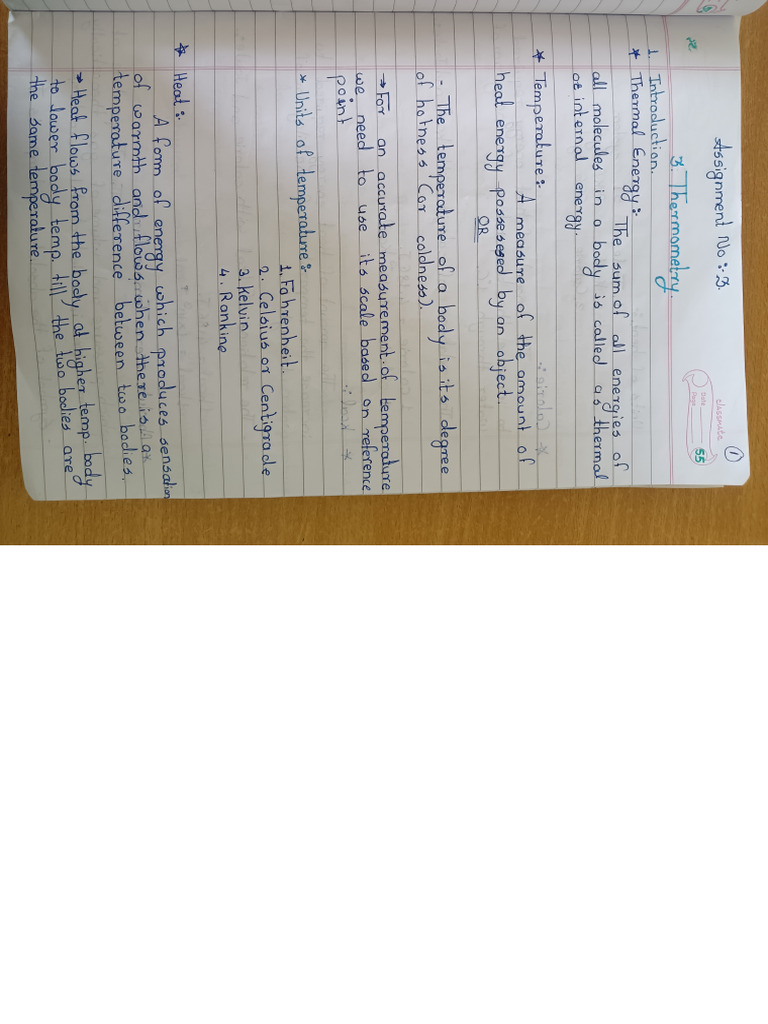 1
classmate
Date
Page 55
Assignment No :- 3.
3. Thermometry.
1. Introduction.
* Thermal Energy :-
The sum of all energies of
all molecules in a body is called as thermal
or internal energy.
* Temperature :-
A measure of the amount of
heal energy possesesed by an object.
OR
- The temperature of a body is it's degree
of hotness (or coldness).
→ For an accurate measurement of temperature
we need to use its scale based on reference
point
* Units of temperature :-
1. Fahrenheit.
2. Celsius or Centigrade
3. Kelvin
4. Rankine
* Heat :-
A form of energy which produces sensation
of warmth and flows when there is a
temperature difference between two bodies.
→ Heat flows from the body at higher temp. body
to lower body temp. till the two bodies are
the same temperature.